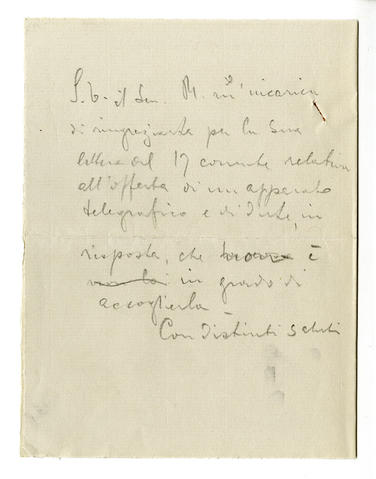 S. E. il Sen. M. m'incarica
di ringraziarla per la Sua
lettera del 17 corrente relativa
all'offerta di un apparato
telegrafico e di dirLe, in
risposta, che è
in grado di
accoglierla
Con distinti saluti